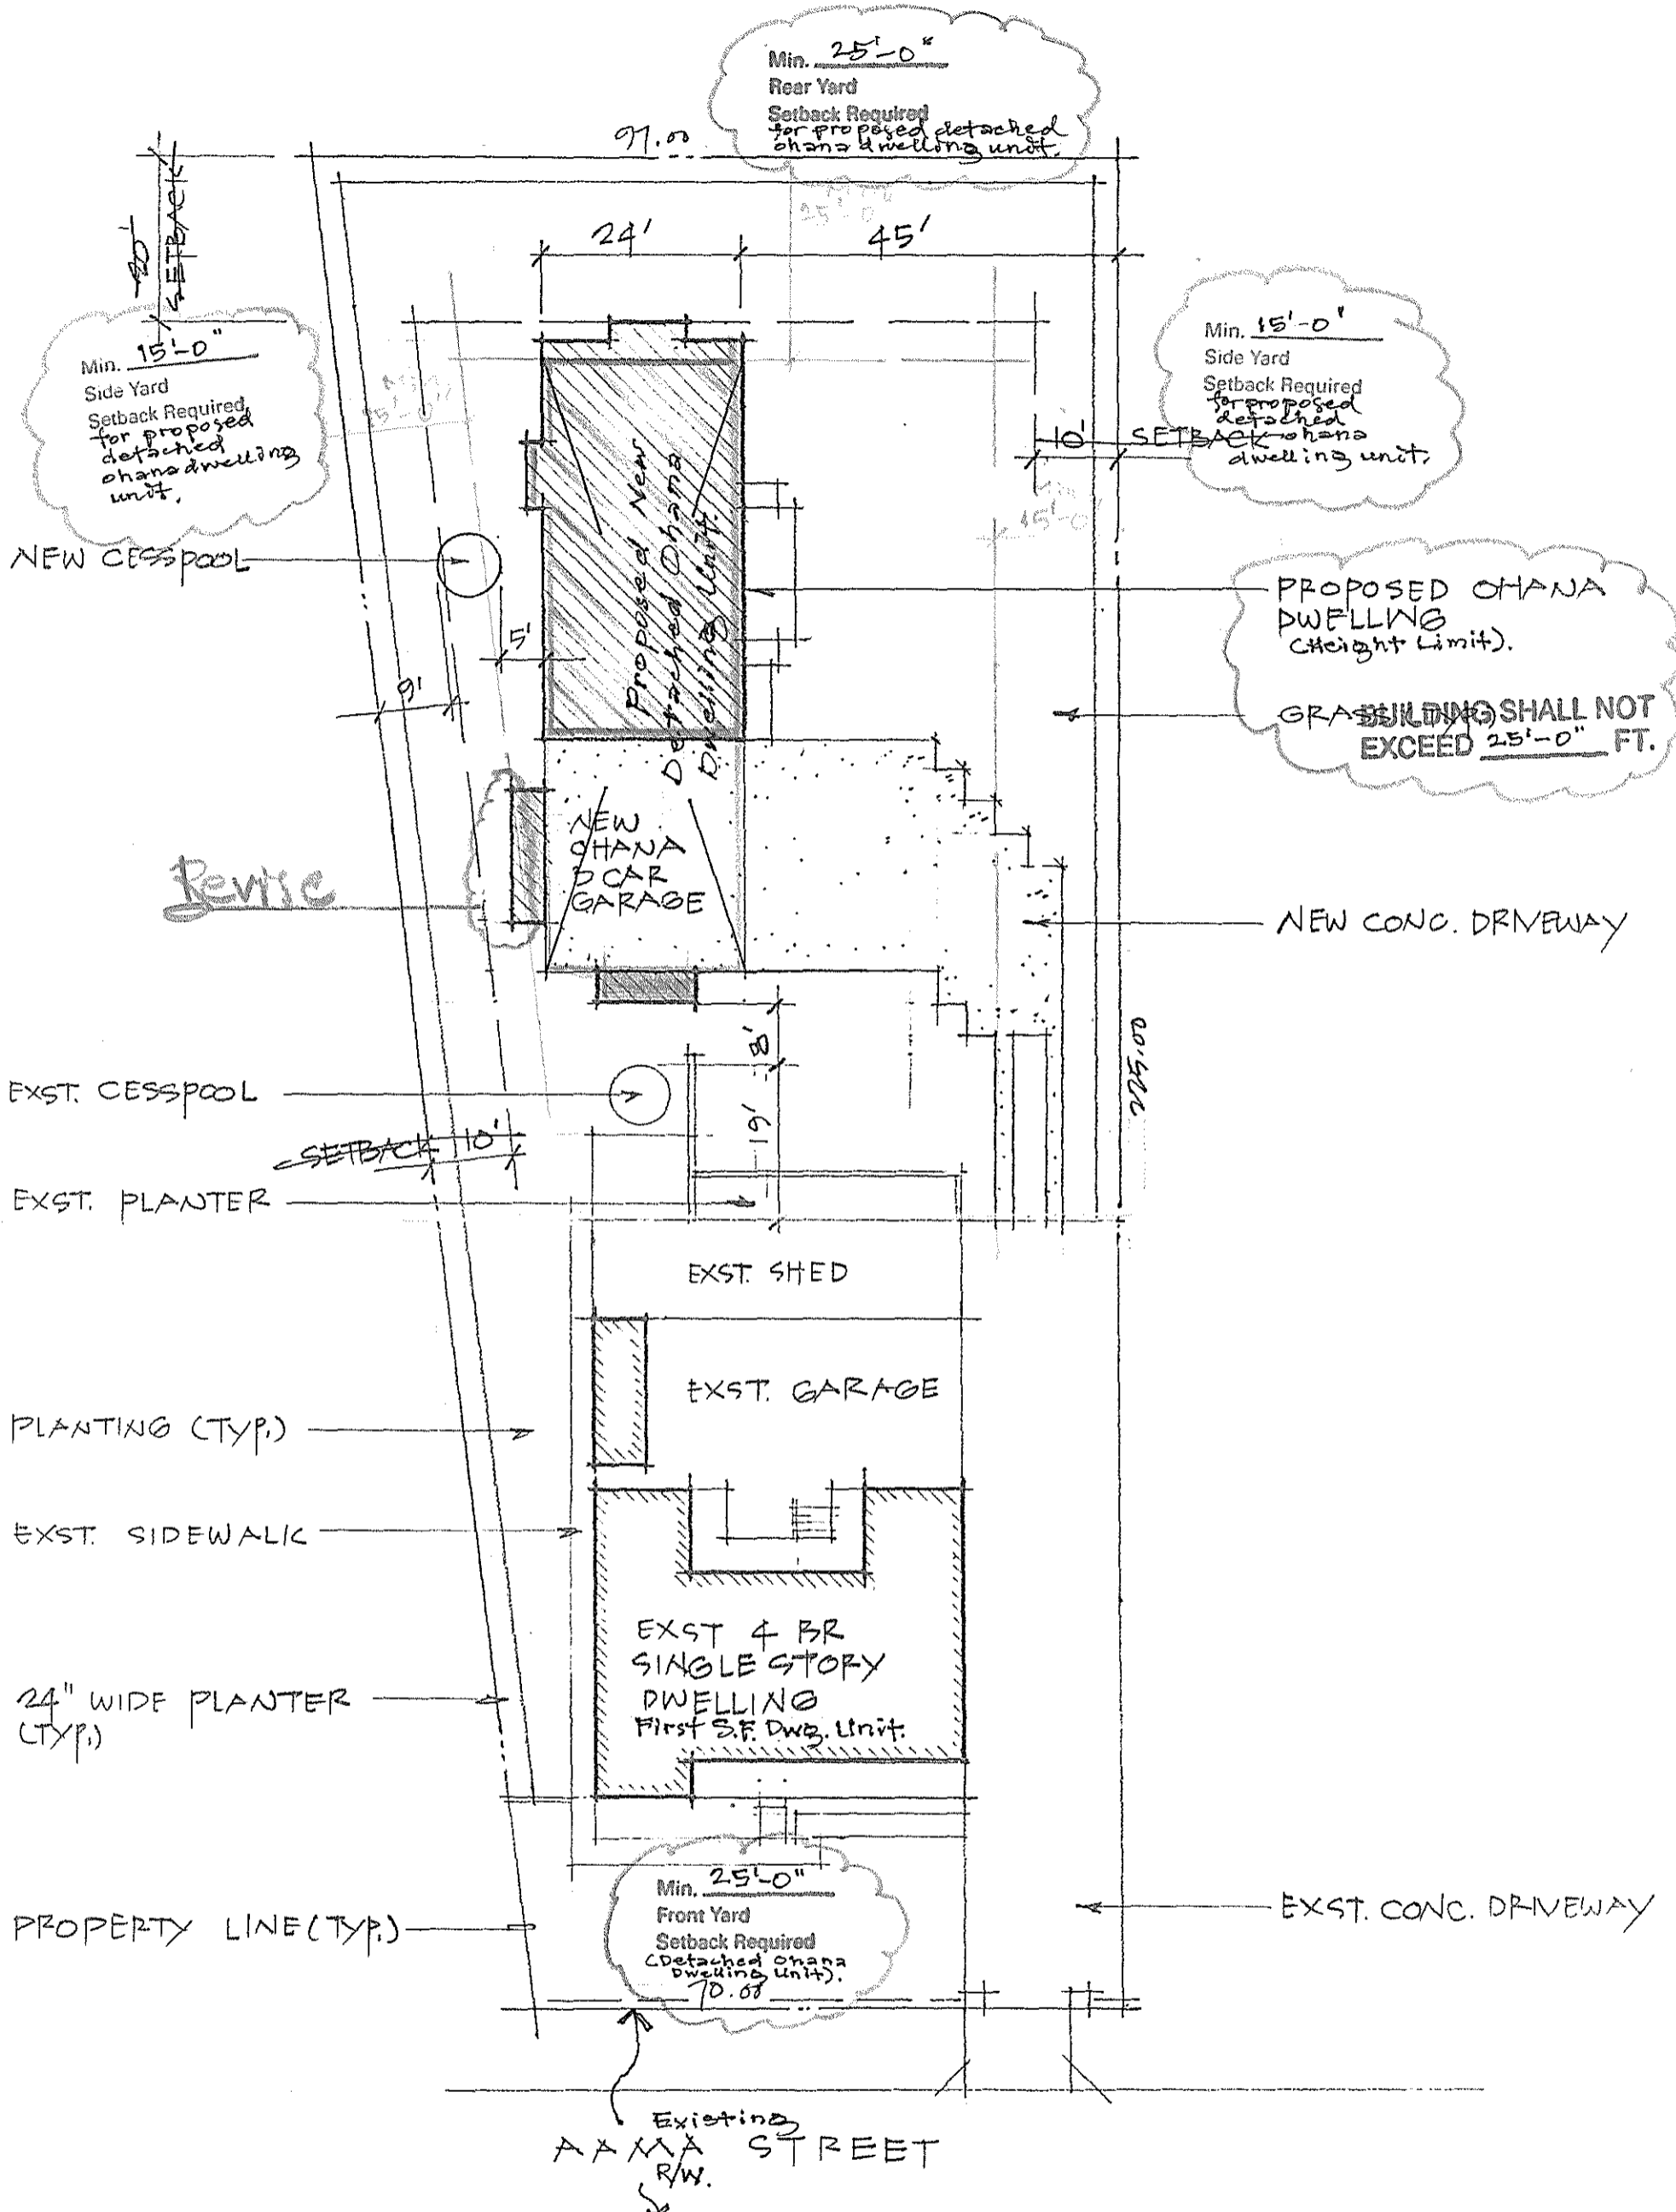 Min. 25'-0"
Rear Yard
Setback Required
for proposed detached
ohana dwelling unit.
97.00
25'-0"
24'
45'
20'
SETBACK
Min. 15'-0"
Side Yard
Setback Required
for proposed
detached
ohana dwelling
unit.
15'-0"
Min. 15'-0"
Side Yard
Setback Required
for proposed
detached
ohana
dwelling unit.
10' SETBACK
15'-0"
Proposed New
Detached Ohana
Dwelling Unit.
NEW CESSPOOL
5'
9'
PROPOSED OHANA
DWELLING
(Height Limit).
GRASS (TYP.)
BUILDING SHALL NOT
EXCEED 25'-0" FT.
NEW
OHANA
2 CAR
GARAGE
Revise
NEW CONC. DRIVEWAY
8'
19'
EXST. CESSPOOL
SETBACK 10'
EXST. PLANTER
EXST. SHED
EXST. GARAGE
PLANTING (TYP.)
EXST. SIDEWALK
EXST 4 BR
SINGLE STORY
DWELLING
First S.F. Dwg. Unit.
24" WIDE PLANTER
(TYP.)
Min. 25'-0"
Front Yard
Setback Required
(Detached Ohana
Dwelling Unit).
70.00
PROPERTY LINE (TYP.)
EXST. CONC. DRIVEWAY
Existing
AAMA STREET
R/W.